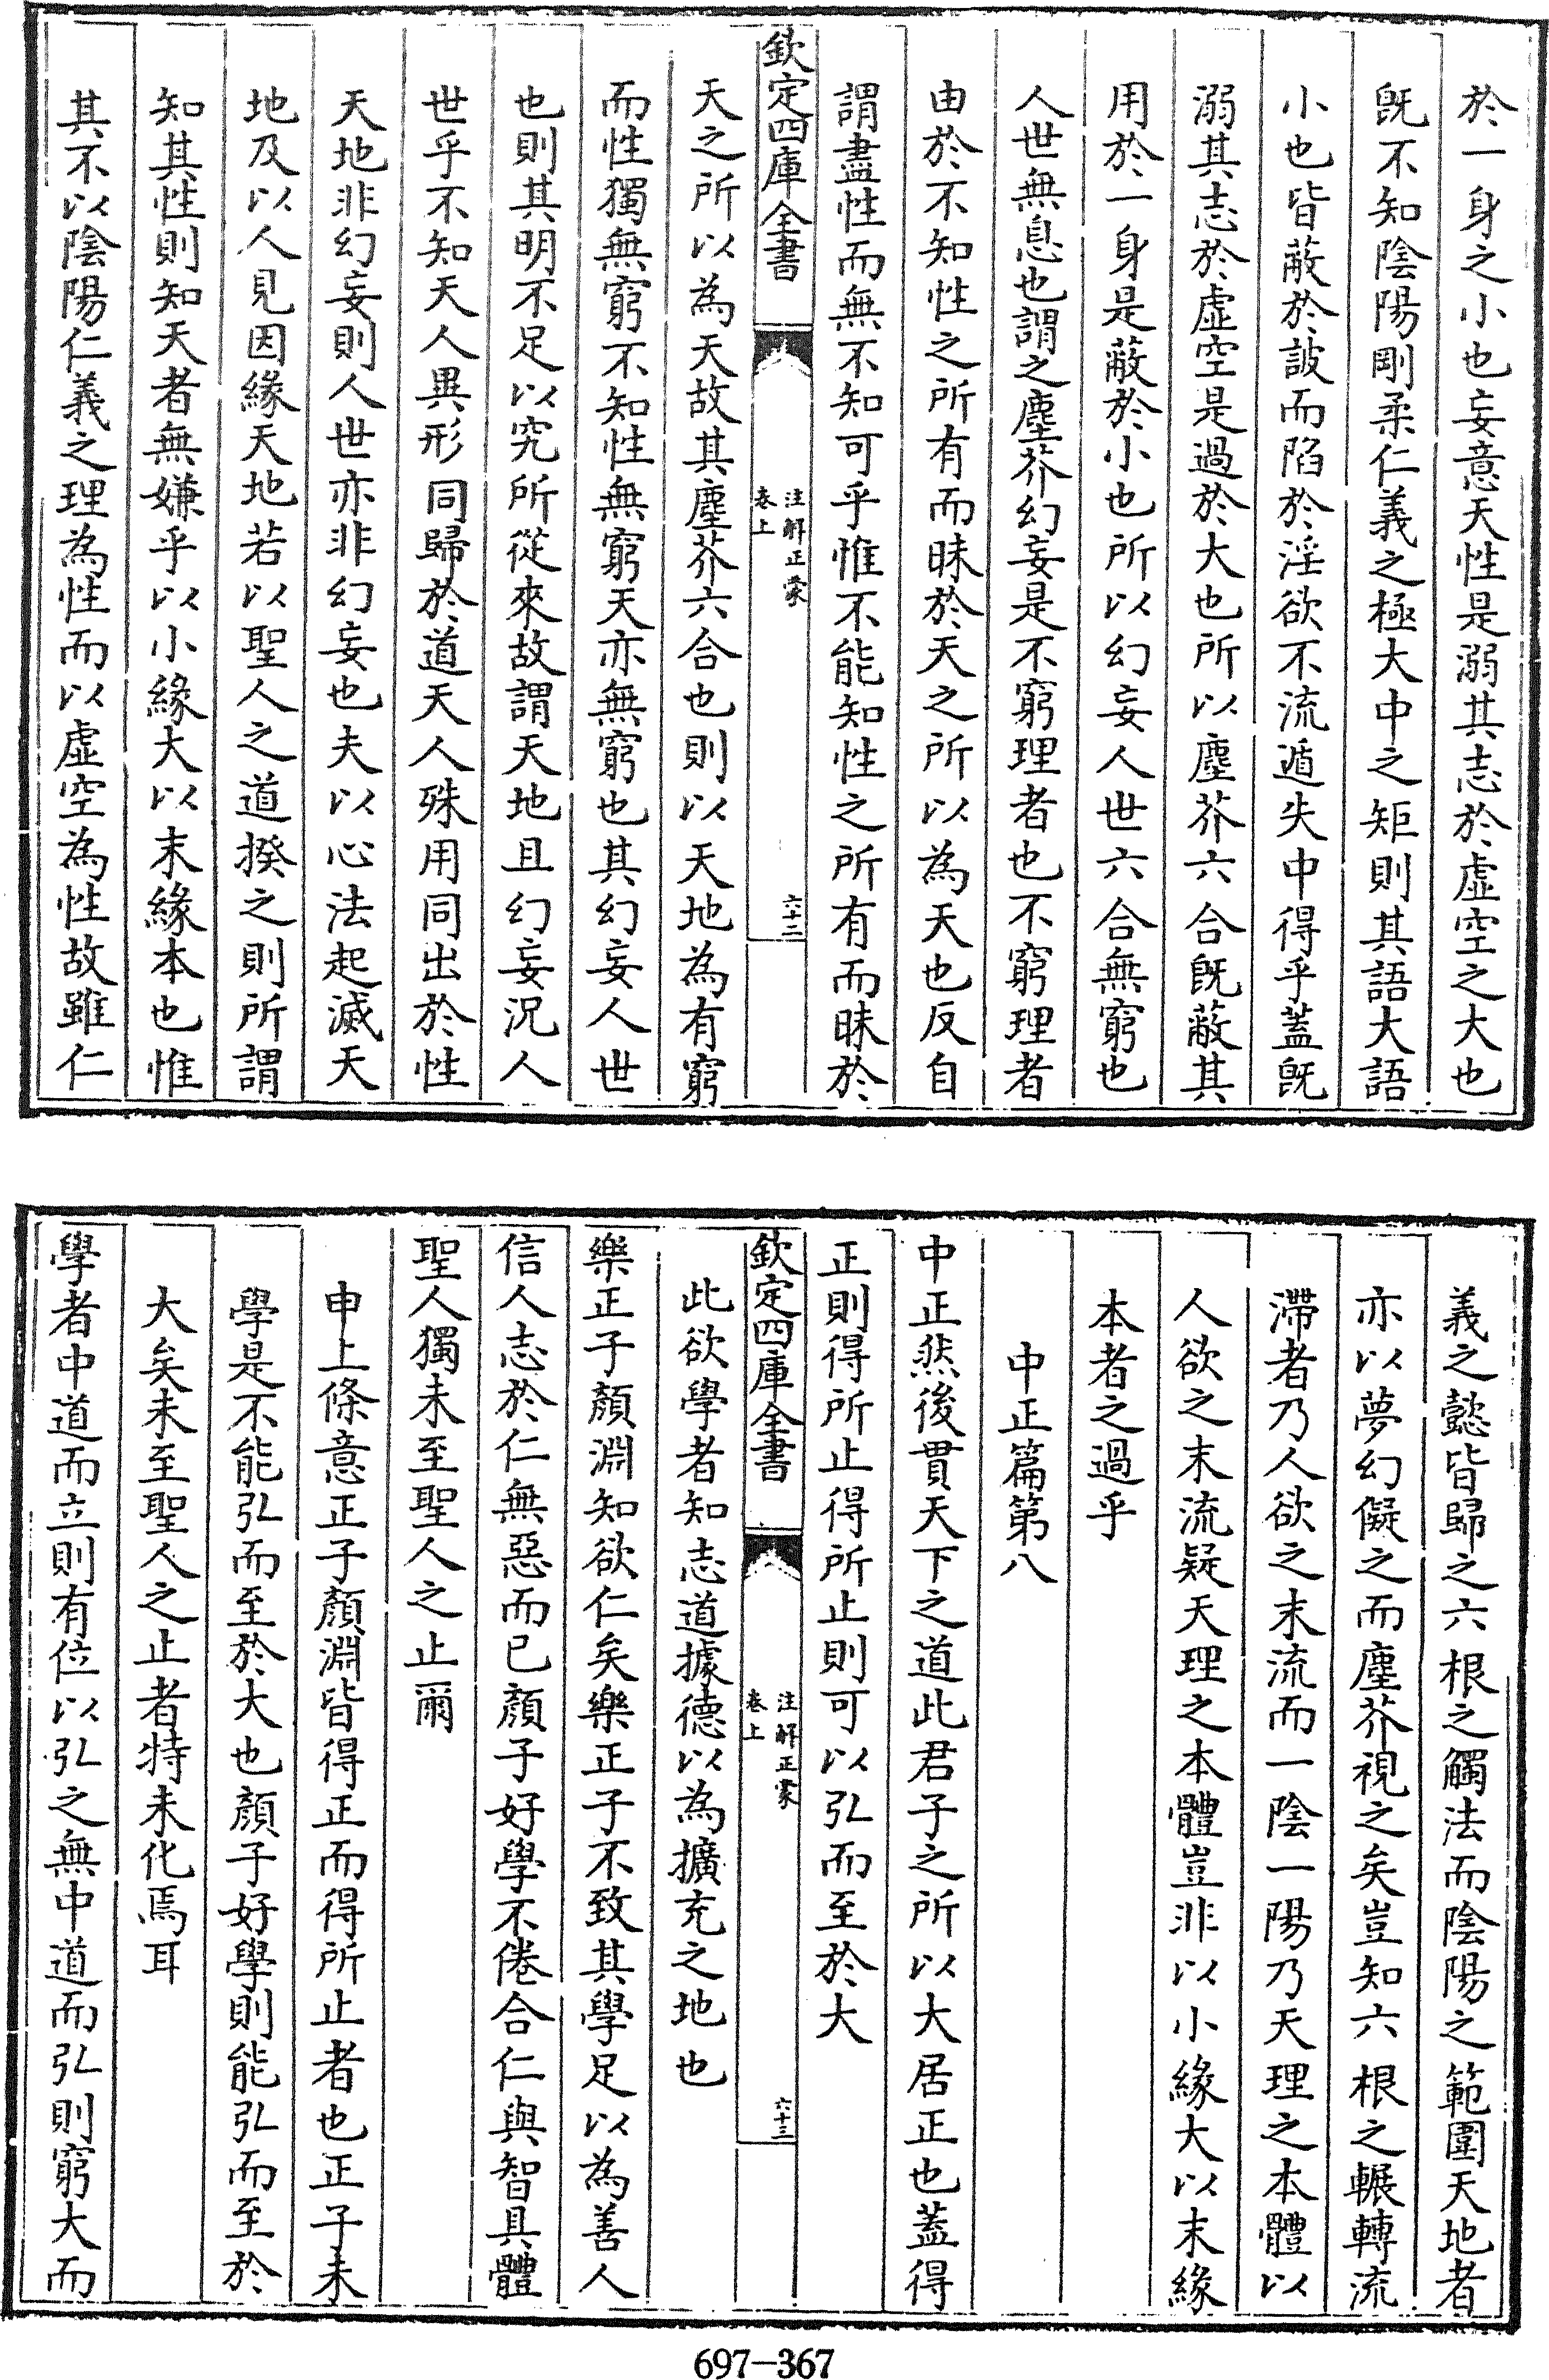 於一身之小也妄意天性是溺其志於虚空之大也
既不知陰陽剛柔仁義之極大中之矩則其語大語
小也皆蔽於詖而陷於淫欲不流遁失中得乎蓋既
溺其志於虚空是過於大也所以塵芥六合既蔽其
用於一身是蔽於小也所以幻妄人世六合無窮也
人世無息也謂之塵芥幻妄是不窮理者也不窮理者
由於不知性之所有而昧於天之所以為天也反自
謂盡性而無不知可乎惟不能知性之所有而昧於
欽定四庫全書
注解正蒙
卷上
六十二
天之所以為天故其塵芥六合也則以天地為有窮
而性獨無窮不知性無窮天亦無窮也其幻妄人世
也則其明不足以究所從來故謂天地且幻妄況人
世乎不知天人異形同歸於道天人殊用同出於性
天地非幻妄則人世亦非幻妄也夫以心法起滅天
地及以人見因緣天地若以聖人之道揆之則所謂
知其性則知天者無嫌乎以小緣大以末緣本也惟
其不以陰陽仁義之理為性而以虚空為性故雖仁
義之懿皆歸之六根之觸法而陰陽之範圍天地者
亦以夢幻儗之而塵芥視之矣豈知六根之輾轉流
滯者乃人欲之末流而一陰一陽乃天理之本體以
人欲之末流疑天理之本體豈非以小緣大以末緣
本者之過乎
中正篇第八
中正然後貫天下之道此君子之所以大居正也蓋得
正則得所止得所止則可以弘而至於大
欽定四庫全書
注解正蒙
卷上
六十三
此欲學者知志道據德以為擴充之地也
樂正子顏淵知欲仁矣樂正子不致其學足以為善人
信人志於仁無惡而已顏子好學不倦合仁與智具體
聖人獨未至聖人之止爾
申上條意正子顏淵皆得正而得所止者也正子未
學是不能弘而至於大也顏子好學則能弘而至於
大矣未至聖人之止者特未化焉耳
學者中道而立則有位以弘之無中道而弘則窮大而
697-367